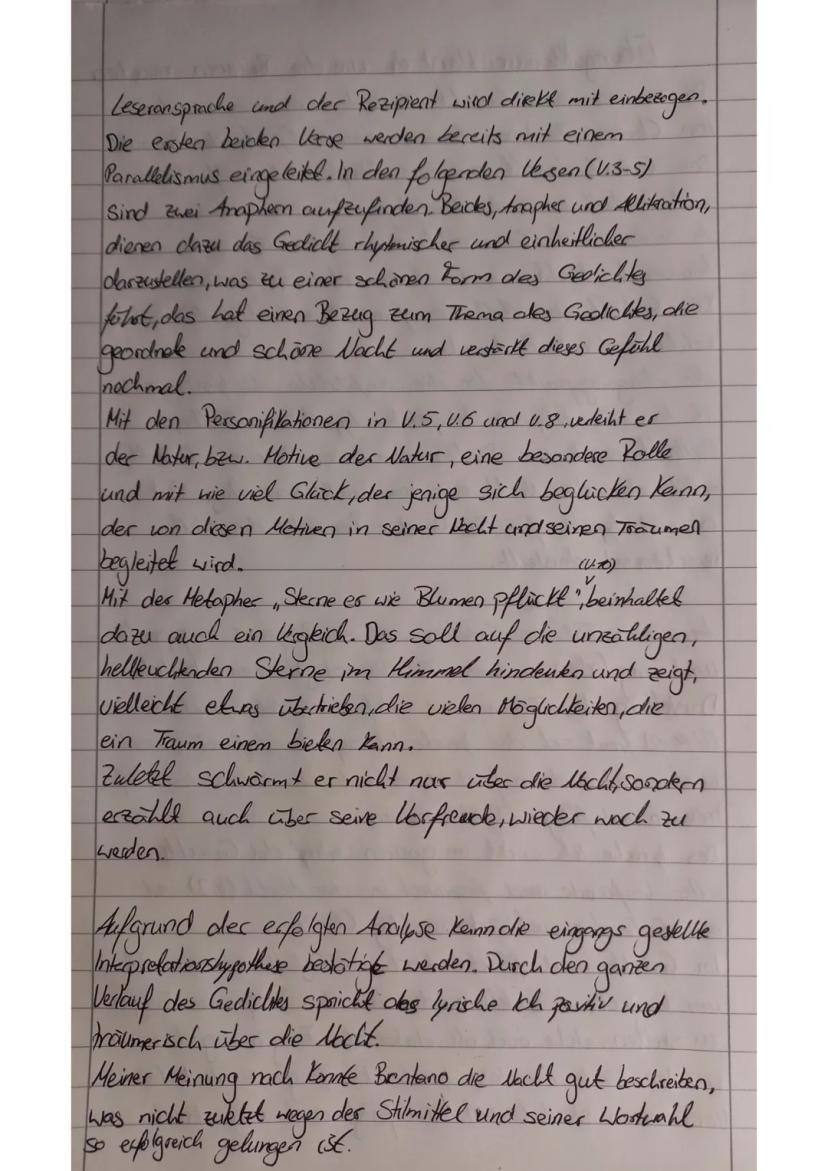 Leseransprache und der Rezipient wird direkt mit einbezogen.
Die ersten beiden Verse werden bereits mit einem
Parallelismus eingeleitet. In den folgenden Versen (V.3-5)
sind zwei Anaphern aufzufinden. Beides, Anapher und Alliteration,
dienen dazu das Gedicht rhytmischer und einheitlicher
darzustellen, was zu einer schönen Form des Gedichtes
führt, das hat einen Bezug zum Thema des Gedichtes, die
geordnete und schöne Nacht und verstärkt dieses Gefühl
nochmal.
Mit den Personifikationen in V.5, V.6 und V.8, verleiht er
der Natur, bzw. Motive der Natur, eine besondere Rolle
und mit wie viel Glück, der jenige sich beglücken kann,
der von diesen Motiven in seiner Nacht und seinen Träumen
begleitet wird.
Mit der Metapher „Sterne er wie Blumen pflückt", (V.10) beinhaltet
dazu auch ein Vergleich. Das soll auf die unzähligen,
hellleuchtenden Sterne im Himmel hindeuten und zeigt,
vielleicht etwas übertrieben, die vielen Möglichkeiten, die
ein Traum einem bieten kann.
Zuletzt schwärmt er nicht nur über die Nacht, sondern
erzählt auch über seine Vorfreude, wieder wach zu
werden.
Aufgrund der erfolgten Analyse kann die eingangs gestellte
Interpretationshypothese bestätigt werden. Durch den ganzen
Verlauf des Gedichtes spricht das lyriche Ich positiv und
träumerisch über die Nacht.
Meiner Meinung nach konnte Brentano die Nacht gut beschreiben,
was nicht zuletzt wegen der Stilmittel und seiner Wortwahl
so erfolgreich gelungen ist.